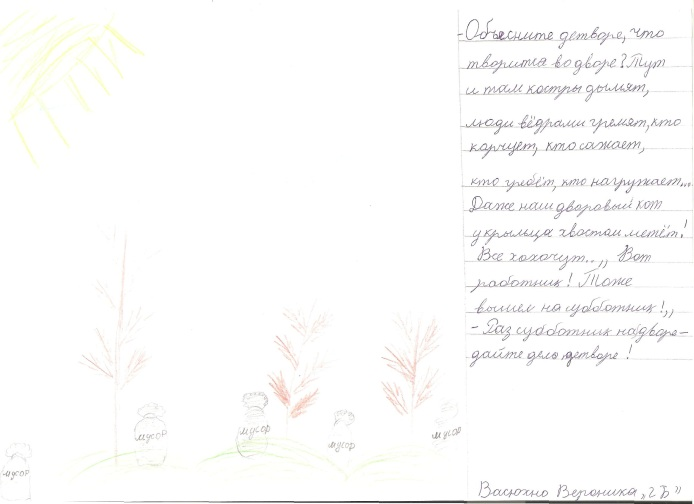 -Объясните детворе, что
творится во дворе? Тут
и там костры дымят,
люди вёдрами гремят, кто
корчует, кто сажает,
кто гребёт, кто нагружает...
Даже наш дворовый кот
у крыльца хвостом метёт!
Все хохочут..,, Вот
работник! Тоже
вышел на субботник!,,
- Раз субботник на дворе-
дайте дело детворе!
мусор
мусор
мусор
мусор
мусор
Васюхно Вероника „2 Б"